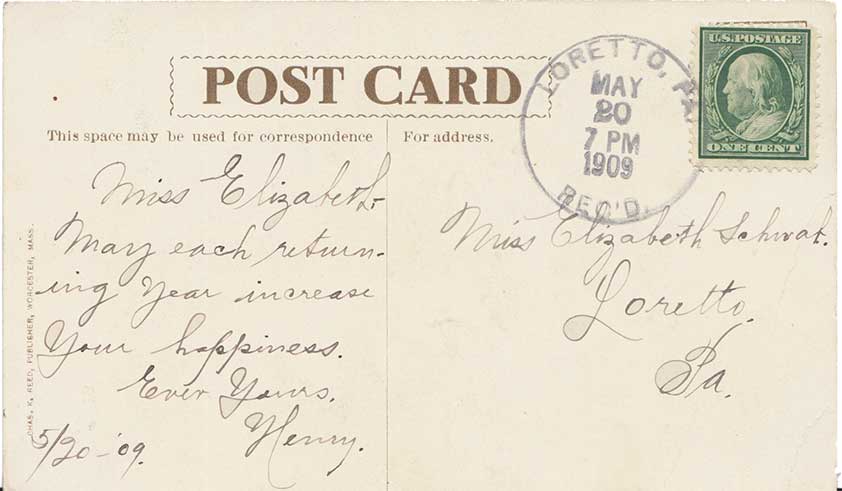 POST CARD
This space may be used for correspondence
For address.
LORETTO, PA.
MAY
20
7 PM
1909
REC'D.
U.S. POSTAGE
ONE CENT
Miss Elizabeth,-
May each return-
ing Year increase
Your happiness.
Ever Yours,
Henry.
5/20-'09.
Miss Elizabeth Schwab.
Loretto,
Pa.
CHAS. K. REED, PUBLISHER, WORCESTER, MASS.